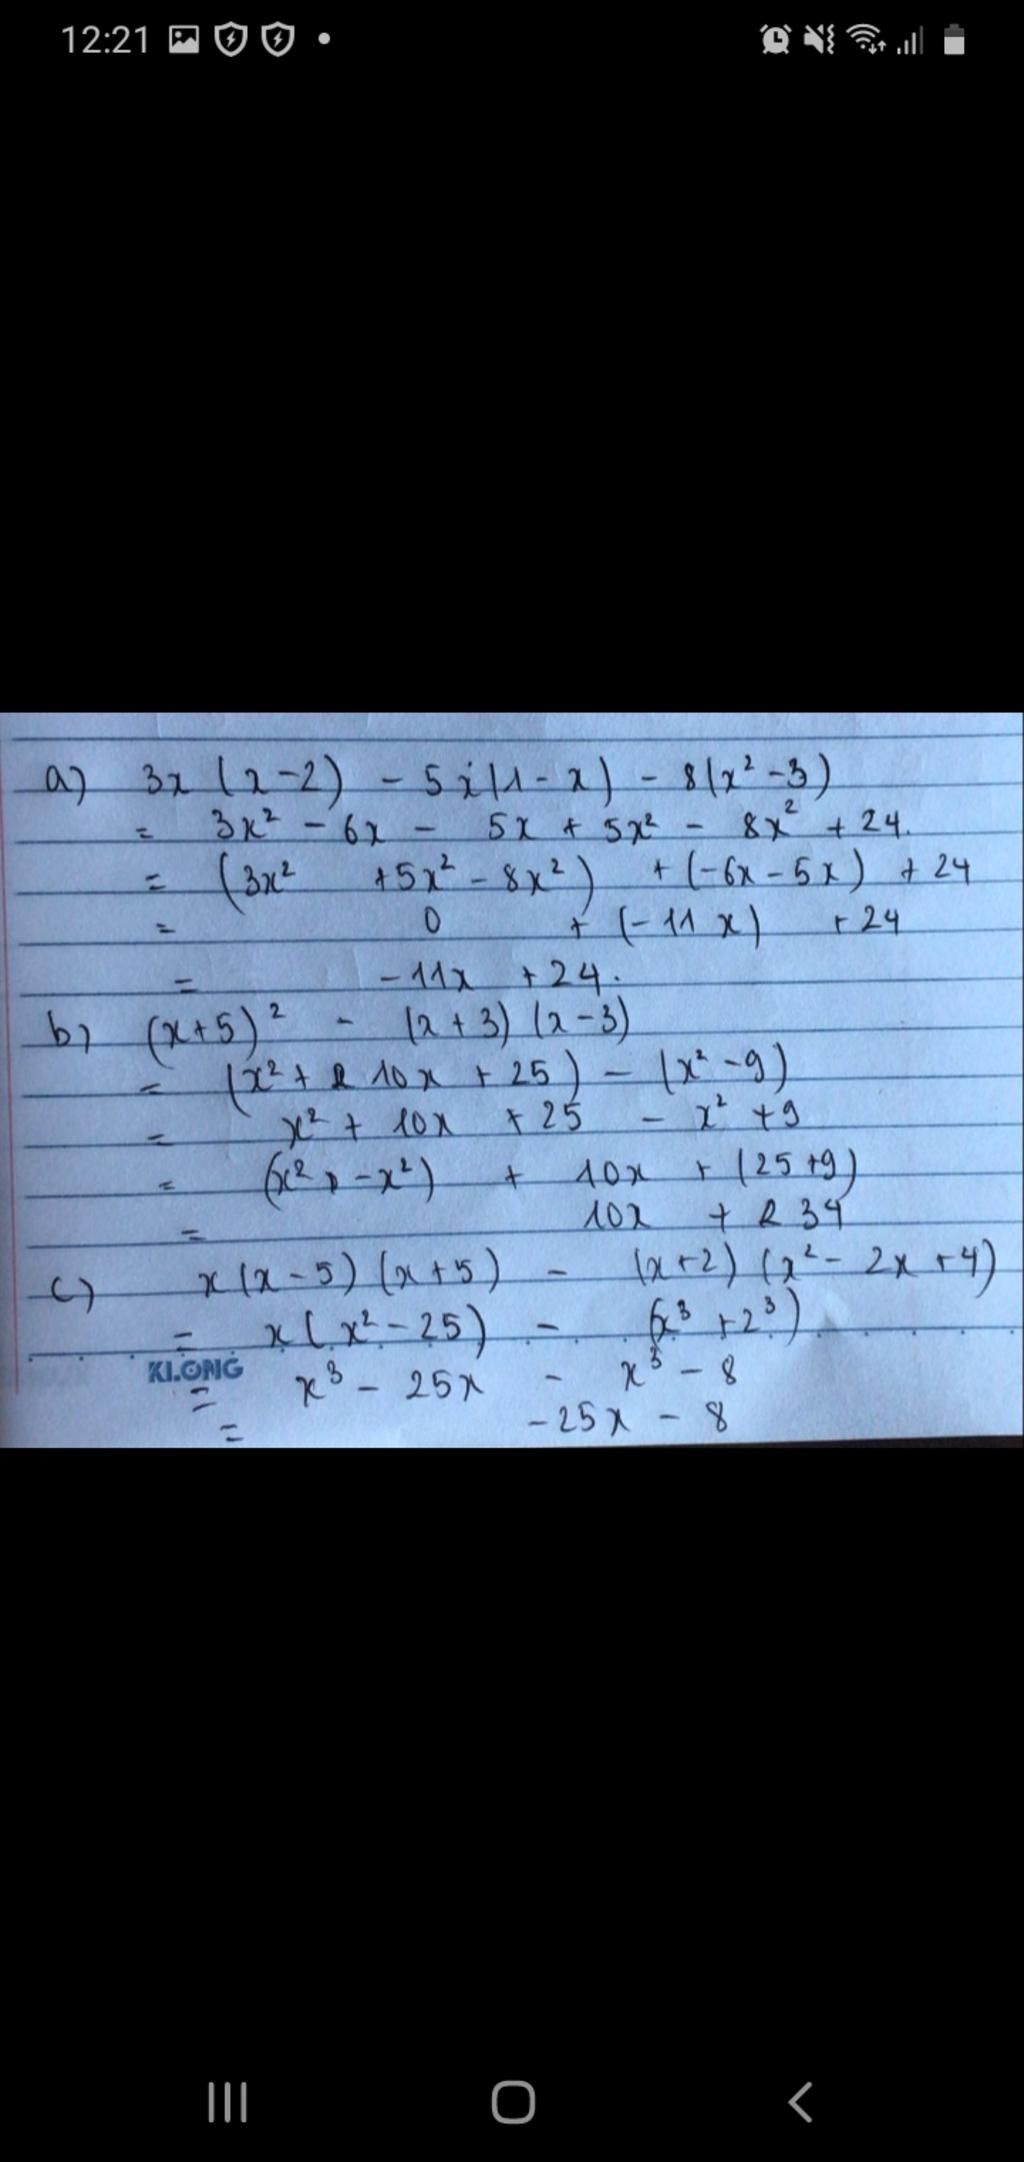 12:21
a) 3x (x-2) - 5x(1-x) - 8(x² -3)
= 3x² - 6x - 5x + 5x² - 8x² + 24.
= (3x² +5x² - 8x²) + (-6x - 5x) + 24
= 0 + (-11x) + 24
= -11x + 24.
b) (x+5)² - (x+3) (x-3)
= (x² + 10x + 25) - (x² - 9)
= x² + 10x + 25 - x² + 9
= (x² - x²) + 10x + (25+9)
= 10x + 34
c) x(x-5) (x+5) - (x+2) (x² - 2x + 4)
= x( x² - 25) - (x³ + 2³)
KLONG
= x³ - 25x - x³ - 8
= -25x - 8